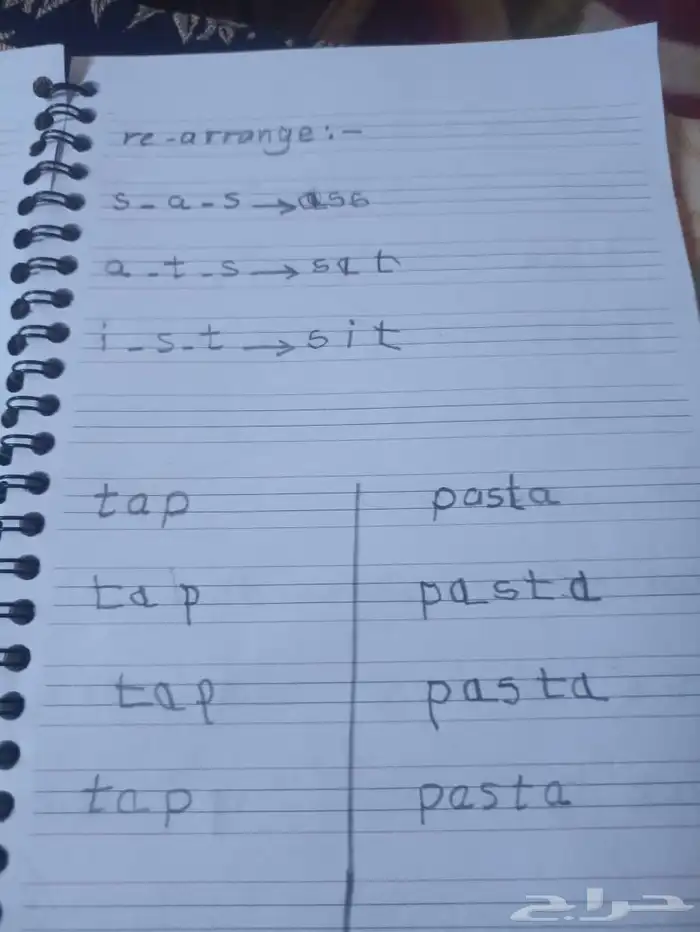 re-arrange:-
s-a-s → ass
a-t-s → sat
i-s-t → sit
tap pasta
tap pasta
tap pasta
tap pasta
حراج